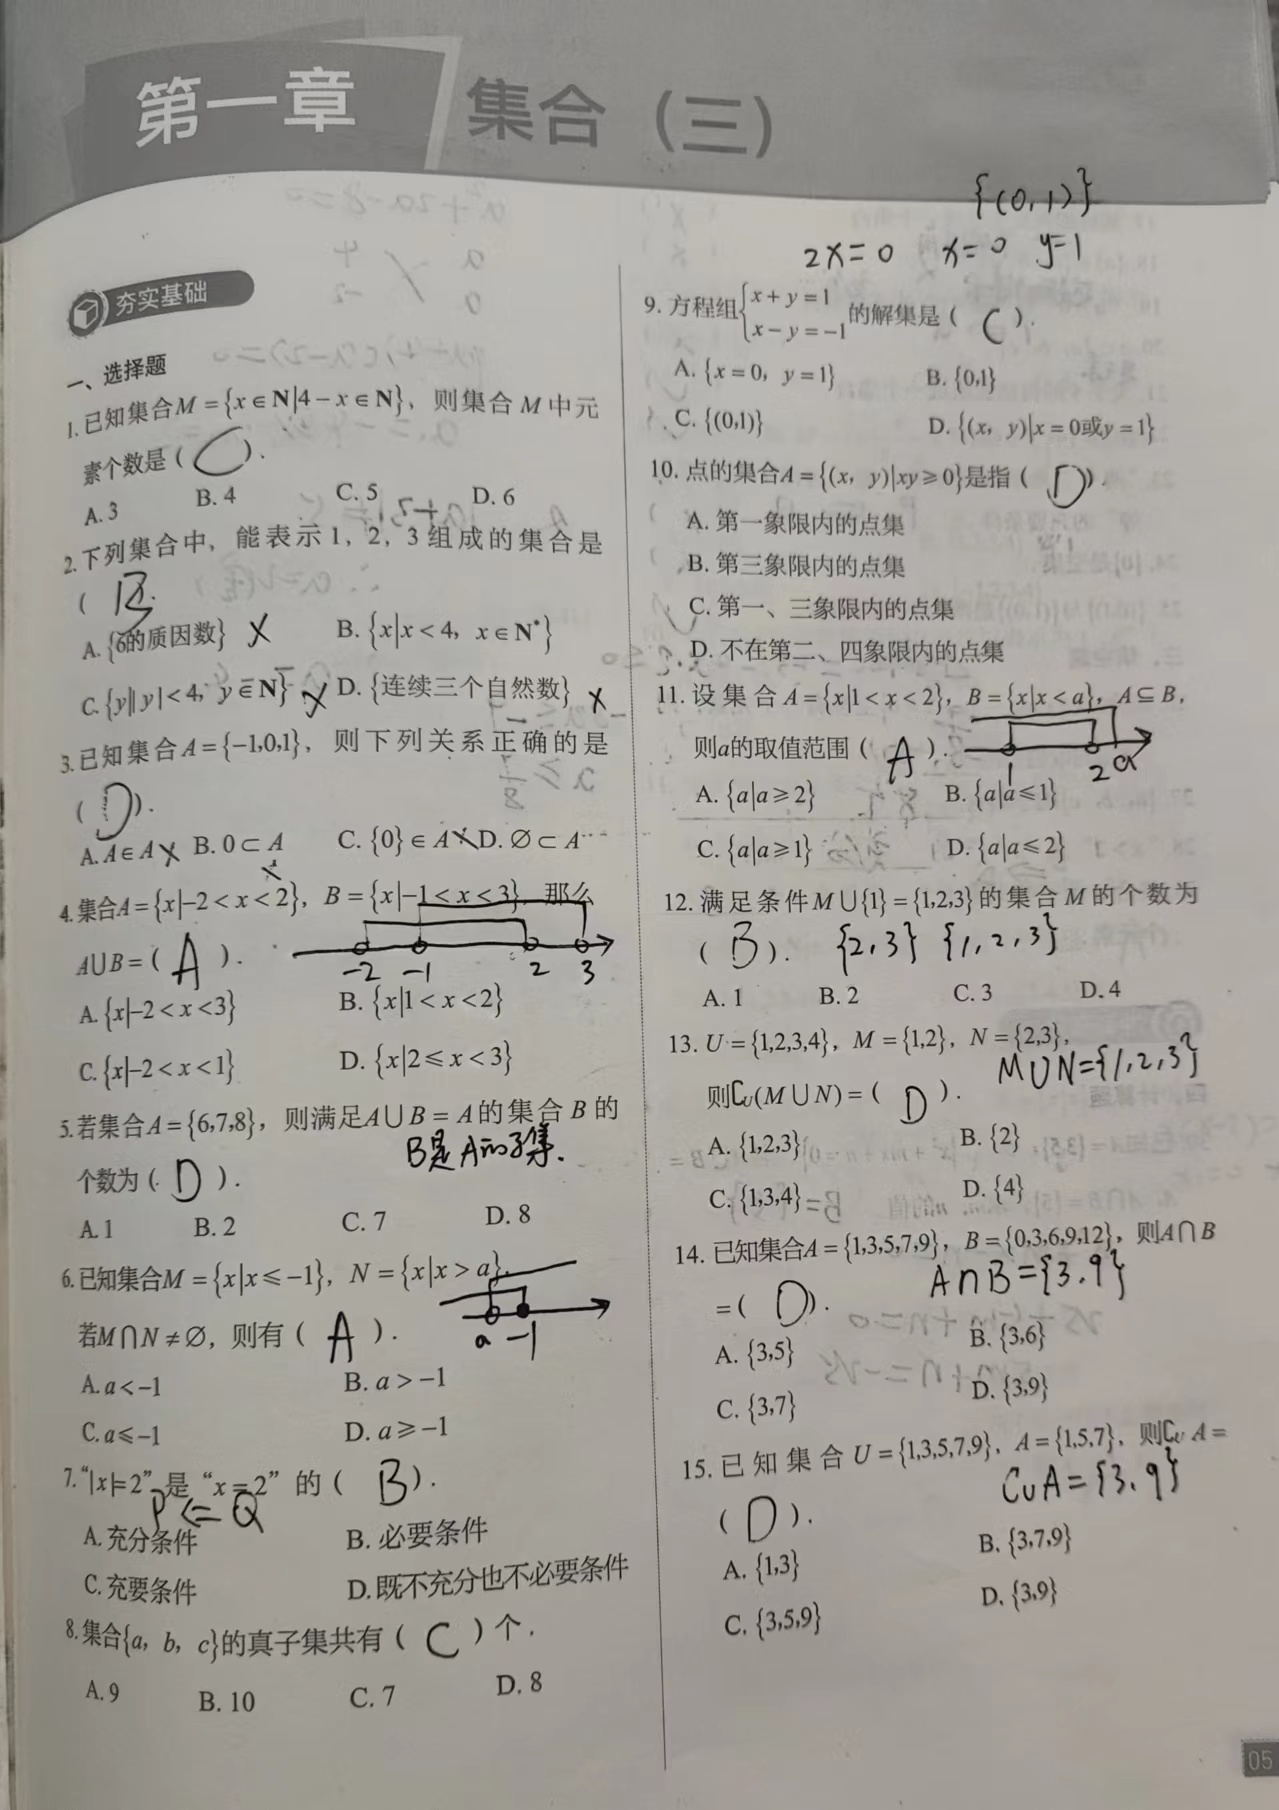 第一章 集合（三）
夯实基础
一、选择题
1.已知集合M={x∈N|4-x∈N}，则集合M中元
素个数是（ C ）.
A.3 B.4 C.5 D.6
2.下列集合中，能表示1，2，3组成的集合是
（ B ）.
A.{6的质因数} × B.{x|x<4，x∈N*}
C.{y||y|<4，y∈N} × D.{连续三个自然数} ×
3.已知集合A={-1,0,1}，则下列关系正确的是
（ D ）.
A.A∈A × B.0⊂A × C.{0}∈A × D.∅⊂A
4.集合A={x|-2<x<2}，B={x|-1<x<3}，那么
A∪B=（ A ）.
-2 -1 2 3
A.{x|-2<x<3} B.{x|1<x<2}
C.{x|-2<x<1} D.{x|2≤x<3}
5.若集合A={6,7,8}，则满足A∪B=A的集合B的
B是A的子集.
个数为（ D ）.
A.1 B.2 C.7 D.8
6.已知集合M={x|x≤-1}，N={x|x>a}，
若M∩N≠∅，则有（ A ）.
a -1
A.a<-1 B.a>-1
C.a≤-1 D.a≥-1
7.“|x|=2”是“x=2”的（ B ）.
P⇐Q
A.充分条件 B.必要条件
C.充要条件 D.既不充分也不必要条件
8.集合{a，b，c}的真子集共有（ C ）个.
A.9 B.10 C.7 D.8
{(0,1)}
2x=0 x=0 y=1
9.方程组{x+y=1
x-y=-1 的解集是（ C ）.
A.{x=0，y=1} B.{0,1}
C.{(0,1)} D.{(x，y)|x=0或y=1}
10.点的集合A={(x，y)|xy≥0}是指（ D ）.
A.第一象限内的点集
B.第三象限内的点集
C.第一、三象限内的点集
D.不在第二、四象限内的点集
11.设集合A={x|1<x<2}，B={x|x<a}，A⊆B，
则a的取值范围（ A ）.
1 2 a
A.{a|a≥2} B.{a|a≤1}
C.{a|a≥1} D.{a|a≤2}
12.满足条件M∪{1}={1,2,3}的集合M的个数为
（ B ）. {2,3} {1,2,3}
A.1 B.2 C.3 D.4
13.U={1,2,3,4}，M={1,2}，N={2,3}，
M∪N={1,2,3}
则∁U(M∪N)=（ D ）.
A.{1,2,3} B.{2}
C.{1,3,4} D.{4}
14.已知集合A={1,3,5,7,9}，B={0,3,6,9,12}，则A∩B
A∩B={3.9}
=（ D ）.
A.{3,5} B.{3,6}
C.{3,7} D.{3,9}
15.已知集合U={1,3,5,7,9}，A={1,5,7}，则∁U A=
CuA={3.9}
（ D ）.
A.{1,3} B.{3,7,9}
C.{3,5,9} D.{3,9}
05